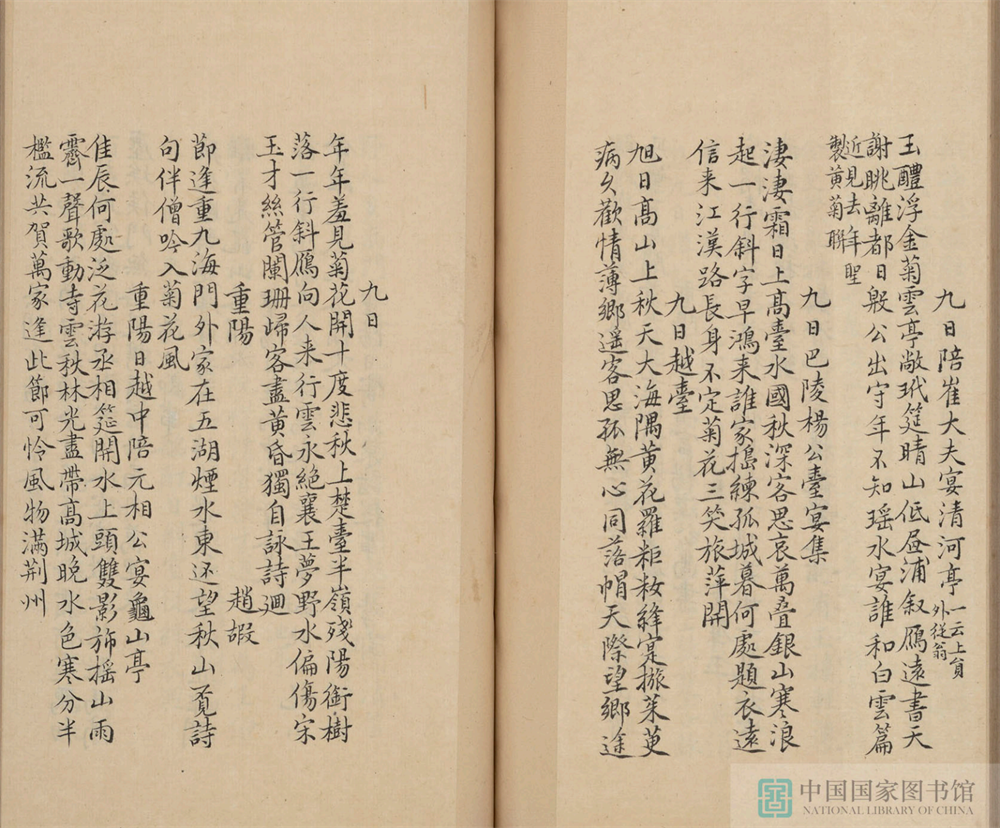 九日陪崔大夫宴清河亭一云上員外從翁
玉醴浮金菊雲亭敞玳筵晴山低昼浦叙鴈遠書天
謝眺離都日殷公出守年不知瑶水宴誰和白雲篇
近見去年聖製黄菊聯
九日巴陵楊公臺宴集
淒淒霜日上髙臺水國秋深客思哀萬疊銀山寒浪
起一行斜字早鴻来誰家搗練孤城暮何處題衣遠
信来江漢路長身不定菊花三笑旅萍開
九日越臺
旭日髙山上秋天大海隅黄花羅粔籹絳寔捩茱萸
病久歡情薄鄉遥客思孤無心同落帽天際望鄉途
九日
年年羞見菊花開十度悲秋上楚臺半嶺殘陽銜樹
落一行斜鴈向人来行雲永絶襄王夢野水偏傷宋
玉才絲管闌珊歸客盡黄昏獨自詠詩迴
重陽 趙嘏
節逢重九海門外家在五湖煙水東还望秋山覓詩
句伴僧吟入菊花風
重陽日越中陪元相公宴龜山亭
佳辰何處泛花游丞相筵開水上頭雙影斾摇山雨
霽一聲歌動寺雲秋林光盡帶髙城晚水色寒分半
檻流共賀萬家逢此節可怜風物满荆州
中国国家图书馆
NATIONAL LIBRARY OF CHINA